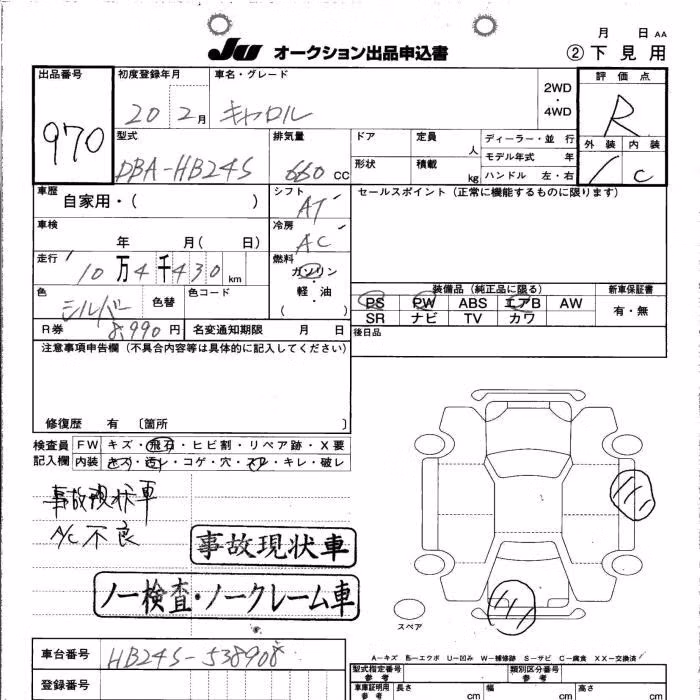 月 日 AA
JU オークション出品申込書 ②下見用
出品番号 970
初度登録年月 20 2月
車名・グレード キャロル
2WD・4WD
評価点 R
外装 内装 C
型式 DBA-HB24S
排気量 660 CC
ドア 定員 人
形状 積載 kg
ディーラー・並行
モデル年式 年
ハンドル 左・右
車歴 自家用・( )
シフト AT
セールスポイント(正常に機能するものに限ります)
車検 年 月( 日)
冷房 AC
走行 10万4千430 km
燃料 ガソリン・軽油 ( )
色 シルバー 色替 色コード
装備品(純正品に限る)
PS PW ABS エアB AW
SR ナビ TV カワ
新車保証書 有・無
R券 8,990円 名変通知期限 月 日
後日品
注意事項申告欄(不具合内容等は具体的に記入してください)
修復歴 有 〔箇所 〕
検査員記入欄
FW キズ・飛石・ヒビ割・リペア跡・X要
内装 キズ・汚レ・コゲ・穴・スレ・キレ・破レ
事故現状車
A/C不良
事故現状車
ノー検査・ノークレーム車
スペア
A-キズ E-エクボ U-凹み W-補修跡 S-サビ C-腐食 XX-交換済
車台番号 HB24S-538908
登録番号
型式指定番号 参考
類別区分番号 参考
車庫証明用 参考 長さ cm 幅 cm 高さ cm